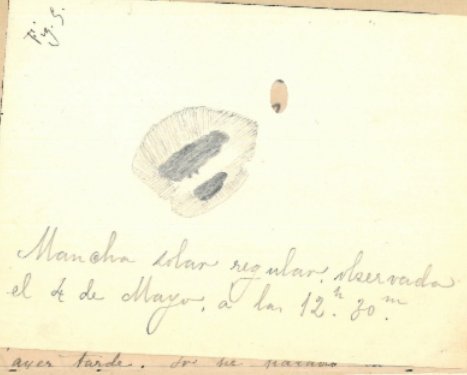 Fig. 5.
Mancha solar regular, observada
el 4 de Mayo, a las 12.h 30.m
ayer tarde.